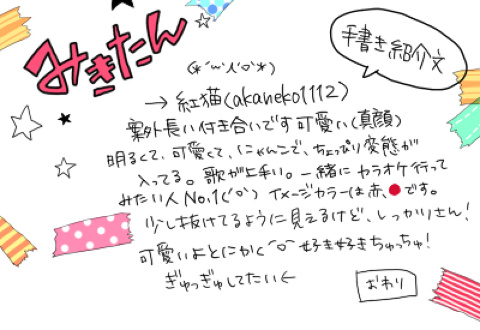 みきたん
(*´ω`(´O`*)
手書き紹介文
→ 紅猫(akaneko1112)
案外長い付き合いです可愛い(真顔)
明るくて、可愛くて、にゃんこで、ちょっぴり変態が
入ってる。歌が上手い。一緒にカラオケ行って
みたい人No,1(´O`) イメージカラーは赤、●です。
少し抜けてるように見えるけど、しっかりさん!
可愛いよとにかく^O^好き好きちゅっちゅ!
ぎゅっぎゅしてたい←
おわり